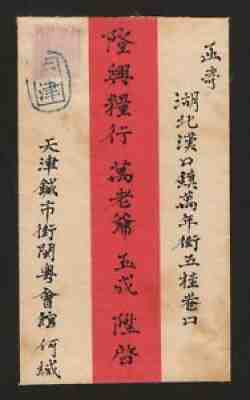 函寄
湖北漢口鎮萬年街五桂巷口
隆興糧行萬老爺玉成陞啓
天津鍼市街閩粵會館何緘
津